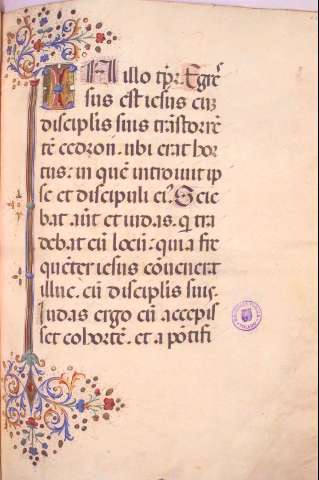 IN illo tp̄r. Egres
sus est iesus cū
disciplis suis trās torrē
tē cedron. ubi erat hor
tus. in quē introiuit ip
se et discipuli ei9. Scie
bat aūt et iudas. q̄ tra
debat eū locū. quia fre
quēter iesus cōuenerat
illuc. cū disciplis suis.
Iudas ergo cū accepis
set cohortē. et a pōtifi